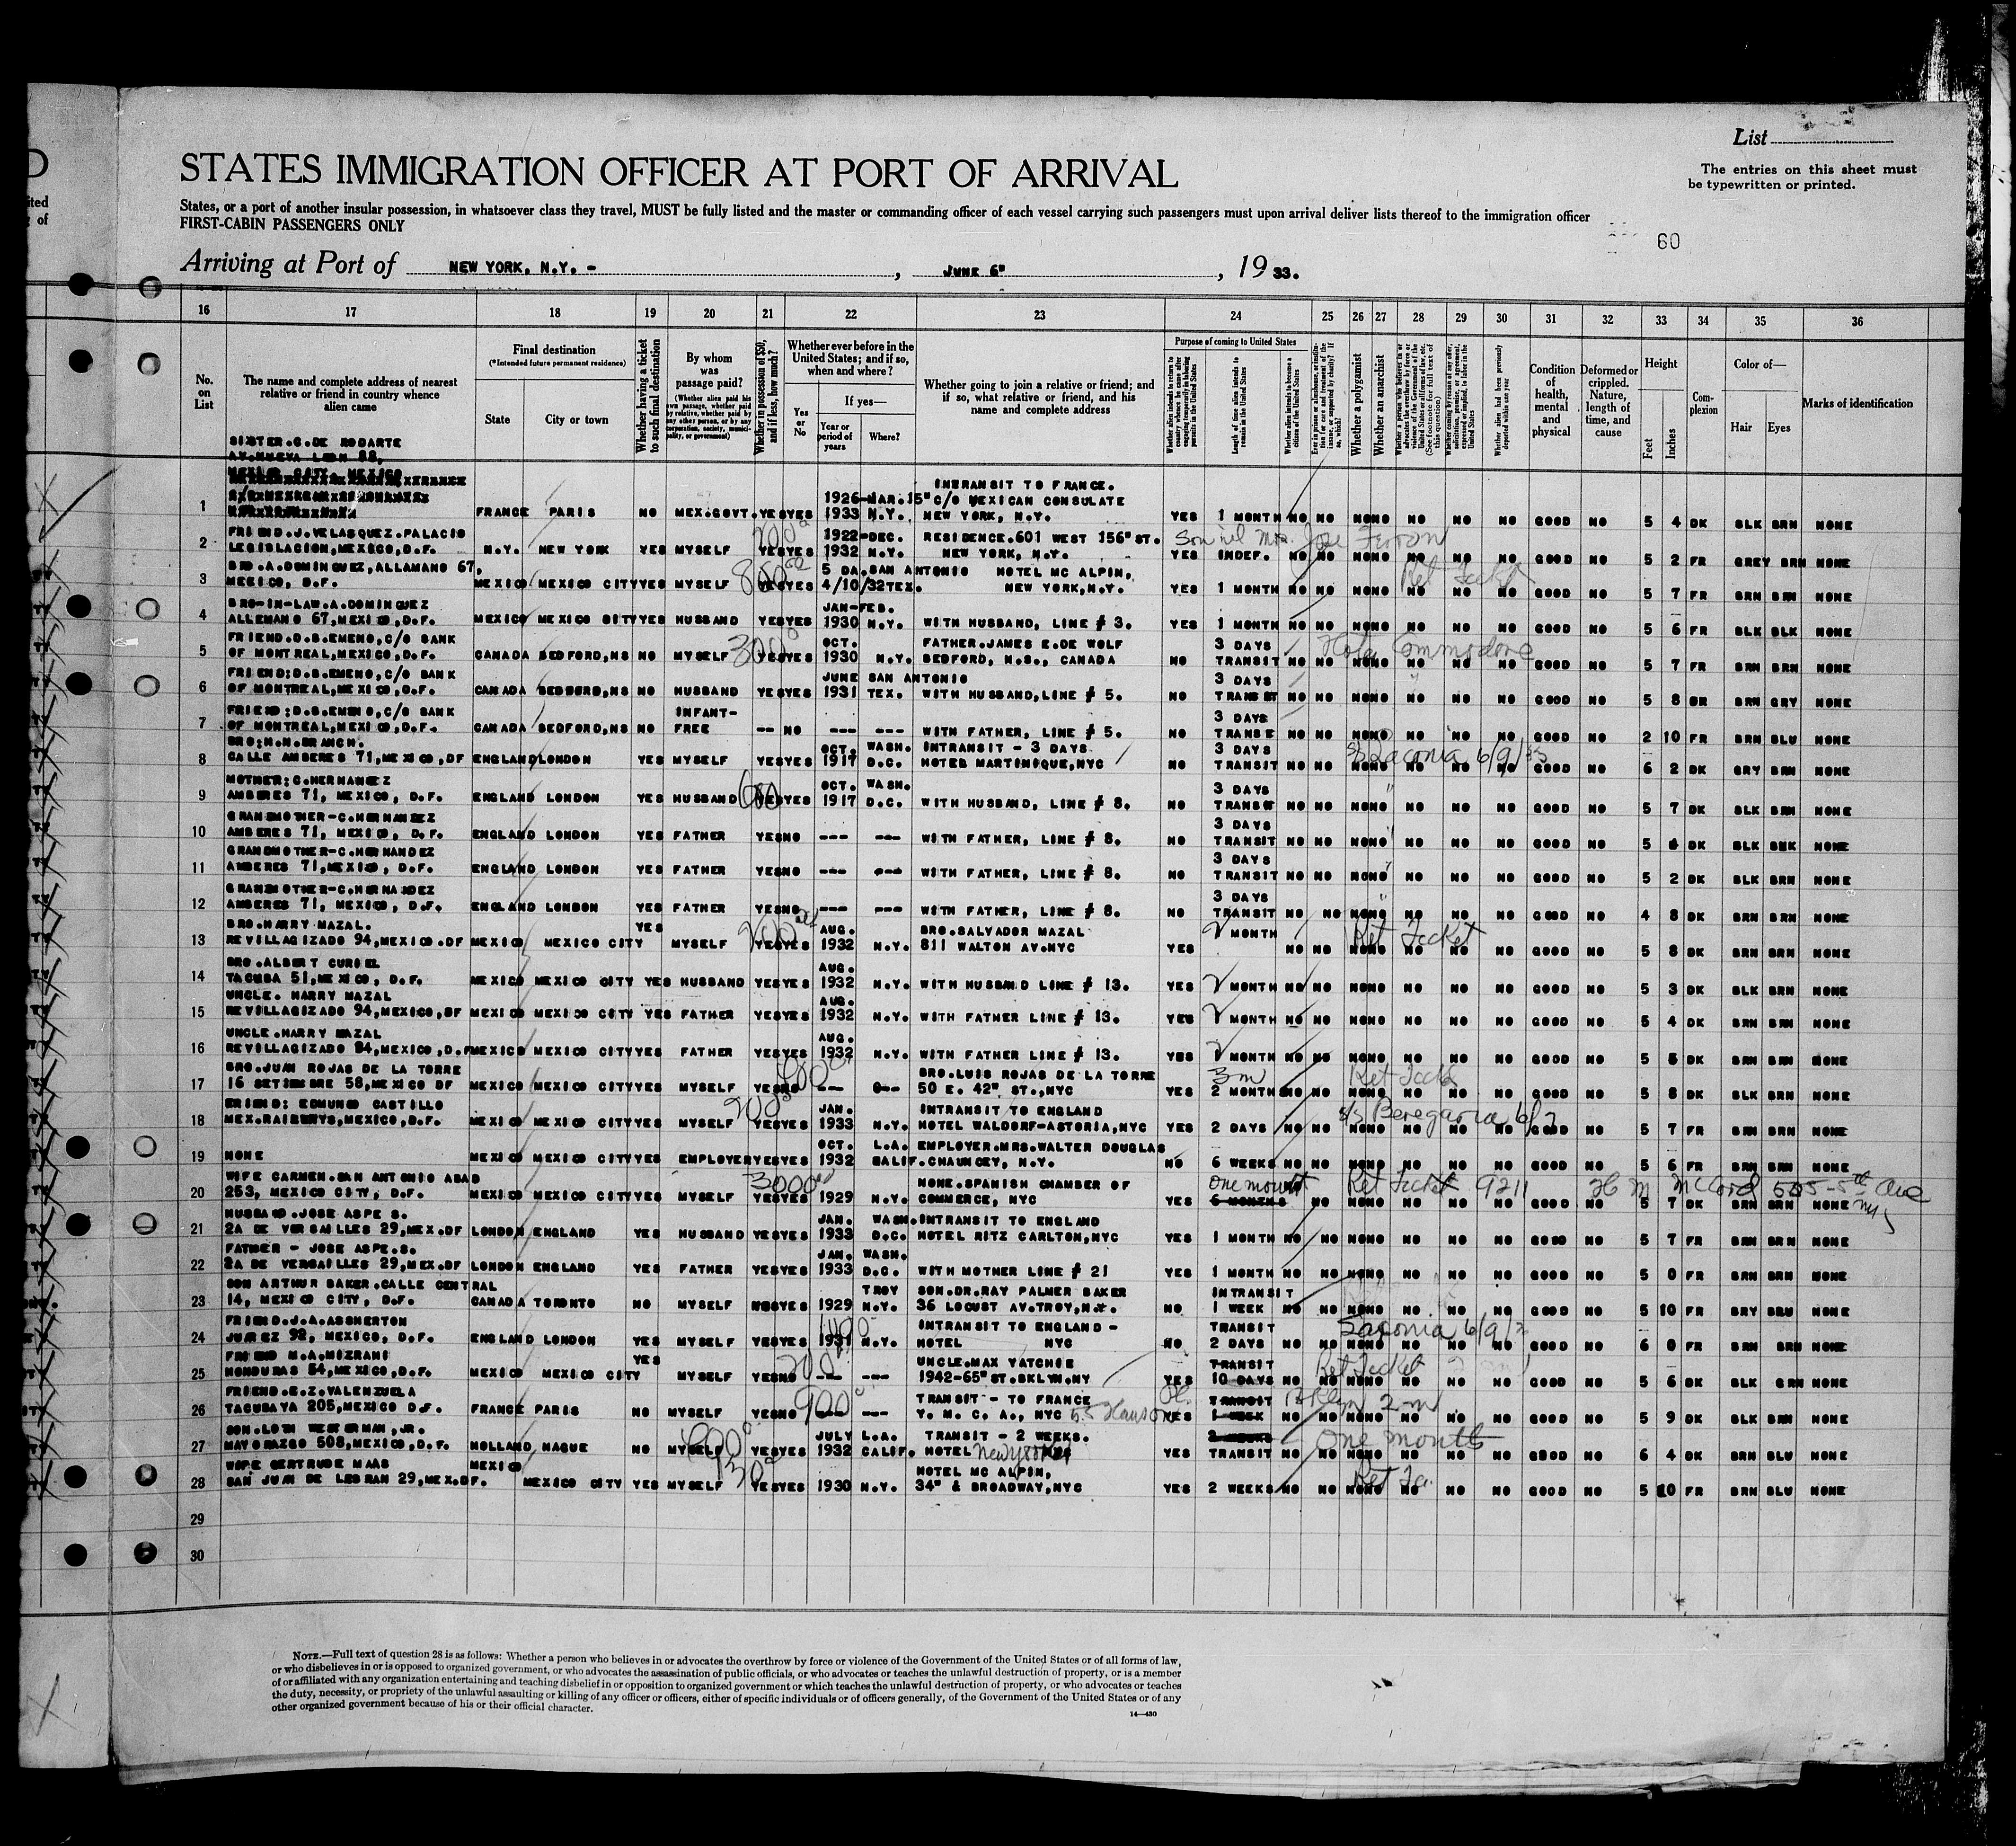 D
ited
of
List
The entries on this sheet must
be typewritten or printed.
STATES IMMIGRATION OFFICER AT PORT OF ARRIVAL
States, or a port of another insular possession, in whatsoever class they travel, MUST be fully listed and the master or commanding officer of each vessel carrying such passengers must upon arrival deliver lists thereof to the immigration officer
FIRST-CABIN PASSENGERS ONLY
60
Arriving at Port of NEW YORK, N.Y. - , JUNE 6" , 19 33.
16 17 18 19 20 21 22 23 24 25 26 27 28 29 30 31 32 33 34 35 36
No. on List
The name and complete address of nearest relative or friend in country whence alien came
Final destination
(*Intended future permanent residence)
State City or town
Whether having a ticket to such final destination
By whom was passage paid?
(Whether alien paid his own passage, whether paid by relative, whether paid by any other person, or by any corporation, society, municipality, or government)
Whether in possession of $50, and if less, how much?
Whether ever before in the United States; and if so, when and where?
Yes or No
If yes—
Year or period of years
Where?
Whether going to join a relative or friend; and if so, what relative or friend, and his name and complete address
Purpose of coming to United States
Whether alien intends to return to country whence he came after engaging temporarily in laboring pursuits in the United States
Length of time alien intends to remain in the United States
Whether alien intends to become a citizen of the United States
Whether a polygamist
Whether an anarchist
Condition of health, mental and physical
Deformed or crippled. Nature, length of time, and cause
Height
Feet Inches
Complexion
Color of—
Hair Eyes
Marks of identification
SISTER.C.DE RODARTE
AV.NUEVA LEON 88,
MEXICO CITY, MEXICO
INTRANSIT TO FRANCE.
1926-MAR.15" C/O MEXICAN CONSULATE
1 FRANCE PARIS NO MEX.GOVT. YES YES 1933 N.Y. NEW YORK, N.Y. YES 1 MONTH NO NO NO NO NO NO NO GOOD NO 5 4 DK BLK BRN NONE
FRIEND.J.VELASQUEZ.PALACIO 200 1922-DEC. RESIDENCE.601 WEST 156" ST. Jose Ferron
2 LEGISLACION,MEXICO,D.F. N.Y. NEW YORK YES MYSELF YES YES 1932 N.Y. NEW YORK, N.Y. YES INDEF. NO NO NO NO NO NO NO GOOD NO 5 2 FR GREY BRN NONE
BRO.A.DOMINGUEZ,ALLAMANO 67, 800 5 DA.SAN ANTONIO HOTEL MC ALPIN, Ret Ticket
3 MEXICO, D.F. MEXICO MEXICO CITY YES MYSELF YES YES 4/10/32 TEX. NEW YORK,N.Y. YES 1 MONTH NO NO NO NO NO NO NO GOOD NO 5 7 FR BRN BRN NONE
BRO-IN-LAW.A.DOMINGUEZ JAN-FEB.
4 ALLEMANO 67,MEXICO,D.F. MEXICO MEXICO CITY YES HUSBAND YES YES 1930 N.Y. WITH HUSBAND, LINE # 3. YES 1 MONTH NO NO NO NO NO NO NO GOOD NO 5 6 FR BLK BLK NONE
FRIEND.D.S.EMENO,C/O BANK 300 OCT. FATHER.JAMES E.DE WOLF 3 DAYS Hotel Commodore
5 OF MONTREAL,MEXICO,D.F. CANADA BEDFORD,NS NO MYSELF YES YES 1930 N.Y. BEDFORD, N.S., CANADA NO TRANSIT NO NO NO NO NO NO NO GOOD NO 5 7 FR BRN BRN NONE
FRIEND:D.S.EMENO,C/O BANK JUNE SAN ANTONIO 3 DAYS
6 OF MONTREAL,MEXICO,D.F. CANADA BEDFORD,NS NO HUSBAND YES YES 1931 TEX. WITH HUSBAND,LINE # 5. NO TRANSIT NO NO NO NO NO NO NO GOOD NO 5 8 BRN GRY NONE
FRIEND;D.S.EMENO,C/O BANK INFANT- 3 DAYS
7 OF MONTREAL,MEXICO,D.F. CANADA BEDFORD,NS NO FREE -- NO --- --- WITH FATHER, LINE # 5. NO TRANSIT NO NO NO NO NO NO NO GOOD NO 2 10 FR BRN BLU NONE
BRO:H.N.BRANCH. OCT. WASH. INTRANSIT - 3 DAYS 3 DAYS S/S Laconia 6/9/33
8 CALLE AMBERES 71,MEXICO,DF ENGLAND LONDON YES MYSELF YES YES 1917 D.C. HOTEL MARTINIQUE,NYC NO TRANSIT NO NO NO NO NO NO NO GOOD NO 6 2 DK GRY BRN NONE
MOTHER;C.HERNANDEZ 600 OCT. WASH. 3 DAYS
9 AMBERES 71, MEXICO, D.F. ENGLAND LONDON YES HUSBAND YES YES 1917 D.C. WITH HUSBAND, LINE # 8. NO TRANSIT NO NO NO NO NO NO NO GOOD NO 5 7 DK BLK BRN NONE
GRANDMOTHER-C.HERNANDEZ 3 DAYS
10 AMBERES 71, MEXICO, D.F. ENGLAND LONDON YES FATHER YES NO --- --- WITH FATHER, LINE # 8. NO TRANSIT NO NO NO NO NO NO NO GOOD NO 5 DK BLK NONE
GRANDMOTHER-C.HERNANDEZ 3 DAYS
11 AMBERES 71,MEXICO, D.F. ENGLAND LONDON YES FATHER YES NO --- --- WITH FATHER, LINE # 8. NO TRANSIT NO NO NO NO NO NO NO GOOD NO 5 2 DK BLK BRN NONE
GRANDMOTHER-C.HERNANDEZ 3 DAYS
12 AMBERES 71, MEXICO, D.F. ENGLAND LONDON YES FATHER YES NO --- --- WITH FATHER, LINE # 8. NO TRANSIT NO NO NO NO NO NO NO GOOD NO 4 8 DK BRN BRN NONE
BRO.HARRY MAZAL. YES 200 AUG. BRO.SALVADOR MAZAL 2 MONTH Ret Ticket
13 REVILLAGIZADO 94,MEXICO.DF MEXICO MEXICO CITY MYSELF YES YES 1932 N.Y. 811 WALTON AV.NYC YES NO NO NO NO NO NO NO GOOD NO 5 8 DK BRN BRN NONE
BRO.ALBERT CURIEL AUG.
14 TACUBA 51,MEXICO, D.F. MEXICO MEXICO CITY YES HUSBAND YES YES 1932 N.Y. WITH HUSBAND LINE # 13. YES 2 MONTH NO NO NO NO NO NO NO GOOD NO 5 3 DK BLK BRN NONE
UNCLE. HARRY MAZAL AUG.
15 REVILLAGIZADO 94,MEXICO,DF MEXICO MEXICO CITY YES FATHER YES YES 1932 N.Y. WITH FATHER LINE # 13. YES 2 MONTH NO NO NO NO NO NO NO GOOD NO 5 4 DK BRN BRN NONE
UNCLE.HARRY MAZAL AUG.
16 REVILLAGIZADO 94,MEXICO,D.F. MEXICO MEXICO CITY YES FATHER YES YES 1932 N.Y. WITH FATHER LINE # 13. YES 2 MONTH NO NO NO NO NO NO NO GOOD NO 5 DK BRN BRN NONE
BRO.JUAN ROJAS DE LA TORRE BRO.LUIS ROJAS DE LA TORRE 3m Ret Ticket
17 16 SETIEMBRE 58,MEXICO DF MEXICO MEXICO CITY YES MYSELF YES NO --- --- 50 E. 42" ST.,NYC YES 2 MONTHS NO NO NO NO NO NO NO GOOD NO 5 8 DK BLK BRN NONE
FRIEND; EDMUNDO CASTILLO 200 JAN. INTRANSIT TO ENGLAND S/S Beregaria 6/7
18 MEX.RAILWAYS,MEXICO,D.F. MEXICO MEXICO CITY YES MYSELF YES YES 1933 N.Y. HOTEL WALDORF-ASTORIA,NYC YES 2 DAYS NO NO NO NO NO NO NO GOOD NO 5 7 FR BRN BRN NONE
OCT. L.A. EMPLOYER.MRS.WALTER DOUGLAS
19 NONE MEXICO MEXICO CITY YES EMPLOYER YES YES 1932 CALIF. CHAUNCEY, N.Y. NO 6 WEEKS NO NO NO NO NO NO NO GOOD NO 5 6 FR BRN BRN NONE
WIFE CARMEN.SAN ANTONIO ABAD 3000 NONE.SPANISH CHAMBER OF One month Ret Ticket 9211 McCord 505-5th Ave
20 253, MEXICO CITY, D.F. MEXICO MEXICO CITY YES MYSELF YES YES 1929 N.Y. COMMERCE, NYC YES 6 MONTHS NO NO NO NO NO NO GOOD NO 5 7 DK BRN BRN NONE NY
HUSBAND.JOSE ASPE S. JAN. WASH. INTRANSIT TO ENGLAND
21 2A DE VERSAILLES 29,MEX.DF LONDON ENGLAND YES HUSBAND YES YES 1933 D.C. HOTEL RITZ CARLTON,NYC YES 1 MONTH NO NO NO NO NO NO NO GOOD NO 5 7 FR BRN BRN NONE
FATHER - JOSE ASPE.S. JAN. WASH.
22 2A DE VERSAILLES 29,MEX.DF LONDON ENGLAND YES FATHER YES YES 1933 D.C. WITH MOTHER LINE # 21 YES 1 MONTH NO NO NO NO NO NO NO GOOD NO 5 0 FR BRN BRN NONE
SON ARTHUR BAKER.CALLE CENTRAL TROY SON.DR.RAY PALMER BAKER INTRANSIT
23 14, MEXICO CITY, D.F. CANADA TORONTO NO MYSELF YES 1929 N.Y. 36 LOCUST AV.TROY,N.Y. NO 1 WEEK NO NO NO NO NO NO NO GOOD NO 5 10 FR NONE
FRIEND.J.A.ASSHERTON INTRANSIT TO ENGLAND - TRANSIT Laconia 6/9/3
24 JUAREZ 92, MEXICO, D.F. ENGLAND LONDON YES MYSELF YES YES 1931 N.Y. HOTEL NYC NO 2 DAYS NO NO NO NO NO NO NO GOOD NO 6 0 FR BRN BRN NONE
FRIEND M.A.MIZRANI YES 200 UNCLE.MAX YATCHIE TRANSIT Ret Ticket
25 HONDURAS 54,MEXICO,D.F. MEXICO MEXICO CITY MYSELF YES NO --- --- 1942-65" ST.BKLYN.NY YES 10 DAYS NO NO NO NO NO NO NO GOOD NO 5 6 DK BLK GRN NONE
FRIEND.E.Z.VALENZUELA 900 TRANSIT - TO FRANCE TRANSIT Bklyn 2m
26 TACUBAYA 205,MEXICO D.F. FRANCE PARIS NO MYSELF YES NO --- --- Y. M. C. A., NYC 55 Hanson Pl. YES 1 WEEK NO NO NO NO NO NO NO GOOD NO 5 9 DK BLK BRN NONE
SON.LOTH WESTERMAN,JR. JULY L.A. TRANSIT - 2 WEEKS. 2 WEEKS One month
27 MAYORAZGO 508,MEXICO,D.F. HOLLAND HAGUE NO MYSELF YES YES 1932 CALIF. HOTEL New Yorker YES TRANSIT NO NO NO NO NO NO NO GOOD NO 6 4 DK BRN BLU NONE
WIFE GERTRUDE MAAS MEXICO HOTEL MC ALPIN,
28 SAN JUAN DE LEGRAN 29,MEX.DF. MEXICO CITY YES MYSELF YES YES 1930 N.Y. 34" & BROADWAY,NYC YES 2 WEEKS NO NO NO NO NO NO NO GOOD NO 5 10 FR BRN BLU NONE
29
30
NOTE.—Full text of question 28 is as follows: Whether a person who believes in or advocates the overthrow by force or violence of the Government of the United States or of all forms of law,
or who disbelieves in or is opposed to organized government, or who advocates the assassination of public officials, or who advocates or teaches the unlawful destruction of property, or is a member
of or affiliated with any organization entertaining and teaching disbelief in or opposition to organized government or which teaches the unlawful destruction of property, or who advocates or teaches
the duty, necessity, or propriety of the unlawful assaulting or killing of any officer or officers, either of specific individuals or of officers generally, of the Government of the United States or of any
other organized government because of his or their official character.
14—430